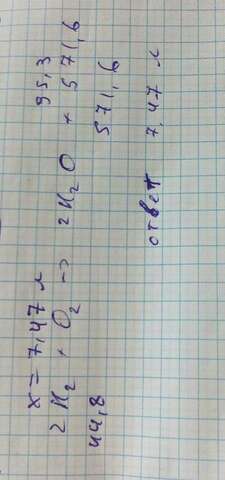 x = 7,47 л 95,3
2H₂ + O₂ → 2H₂O + 571,6
44,8 571,6
ответ 7,47 л